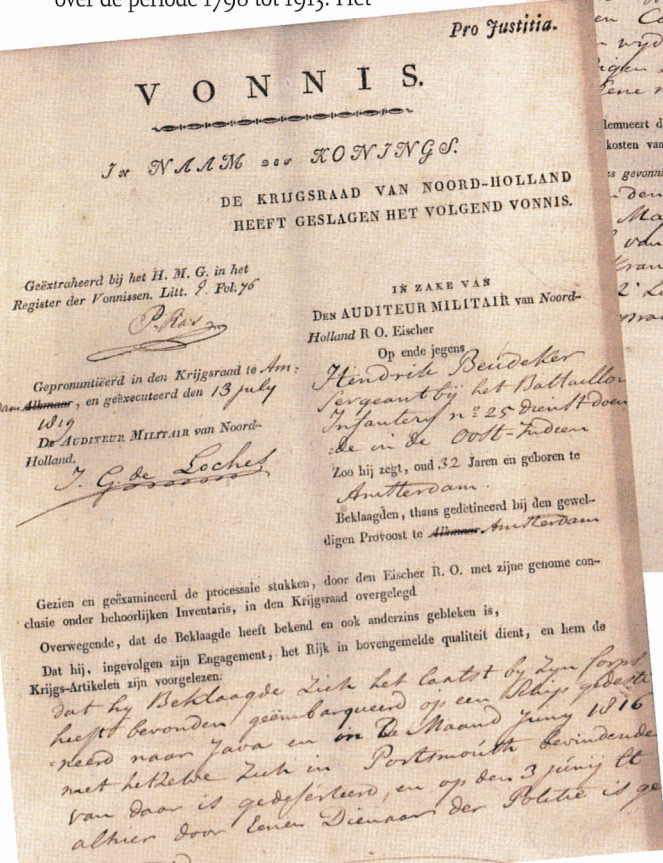 over de periode 1798 tot 1913. Het
Pro Justitia.
VONNIS.
IN NAAM DES KONINGS.
DE KRIJGSRAAD VAN NOORD-HOLLAND
HEEFT GESLAGEN HET VOLGEND VONNIS.
Geëxtraheerd bij het H. M. G. in het
Register der Vonnissen. Litt. Fol. 76
P. Ras
Gepronuntieerd in den Krijgsraad te Am:
dam Alkmaar, en geëxecuteerd den 13 july
1819
De AUDITEUR MILITAIR van Noord-
Holland.
J. G. de Loches
IN ZAKE VAN
DEN AUDITEUR MILITAIR van Noord-
Holland R O. Eischer
Op ende jegens
Hendrik Beudeker
Sergeant bij het Battaillon
Infantery no 25 dienst doen
:de in de Oost-Indien
Zoo hij zegt, oud 32 Jaren en geboren te
Amsterdam.
Beklaagden, thans gedetineerd bij den gewel-
digen Provoost te Alkmaar Amsterdam
Gezien en geëxamineerd de processale stukken, door den Eischer R. O. met zijne genome con-
clusie onder behoorlijken Inventaris, in den Krijgsraad overgelegd
Overwegende, dat de Beklaagde heeft bekend en ook anderzins gebleken is,
Dat hij, ingevolgen zijn Engagement, het Rijk in bovengemelde qualiteit dient, en hem de
Krijgs-Artikelen zijn voorgelezen:
dat hy Beklaagde zich het laatst by zyn Corps
heeft bevonden geëmbarqueerd op een Schip gedesti
:neerd naar Java en in de Maand Juny 1816
met hetzelve zich in Portsmouth bevindende
van daar is gedeserteerd, en op den 3 junij ll
alhier door Eenen Dienaar der Politie is ge
en
wyd
eigen
Eene
demneert d
kosten van
gevonni
den
Ma
van